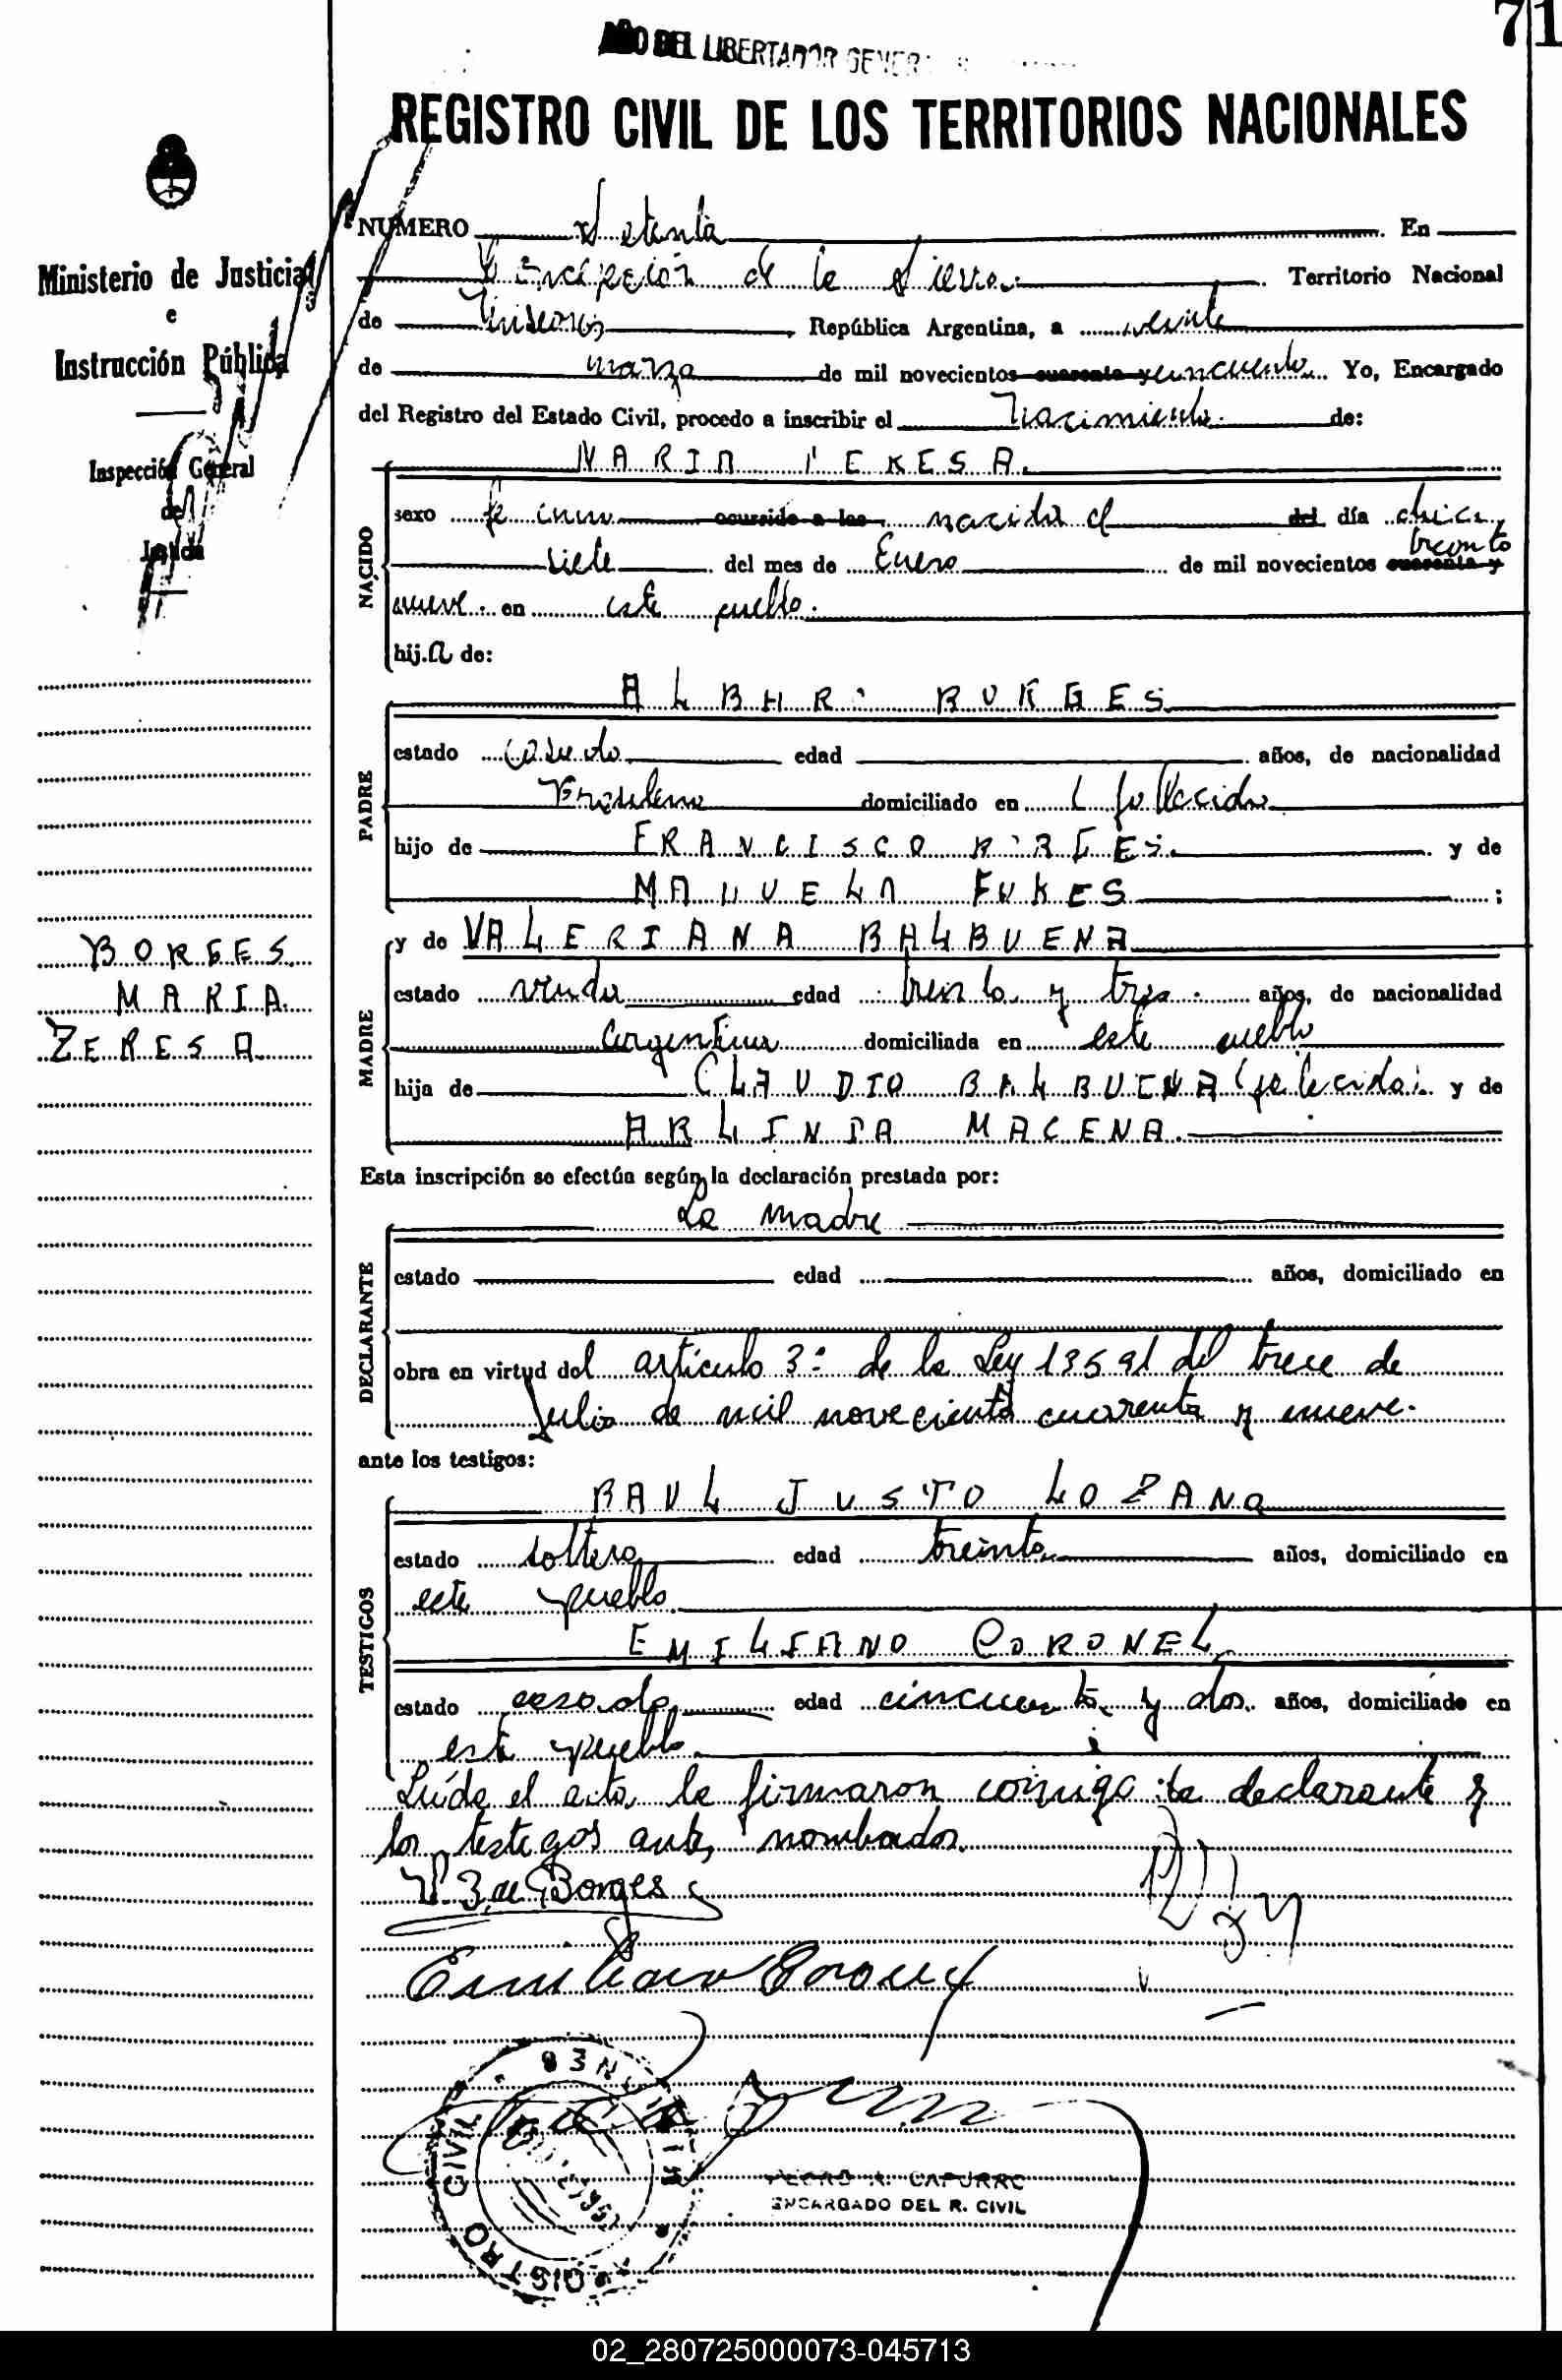 71
AÑO DEL LIBERTADOR GENERAL
REGISTRO CIVIL DE LOS TERRITORIOS NACIONALES
Ministerio de Justicia
e
Instrucción Pública
Inspección General
de
Justicia
BORGES
MARIA
TERESA
NUMERO Setenta En
Concepción de la Sierra Territorio Nacional
de Misiones República Argentina, a veinte
de marzo de mil novecientos cuarenta y cincuenta Yo, Encargado
del Registro del Estado Civil, procedo a inscribir el Nacimiento de:
NACIDO
MARIA TERESA
sexo femenino ocurrido a las nacida el del día dieci
siete del mes de Enero de mil novecientos cuarenta y treinta
nueve en este pueblo.
hija de:
PADRE
ALBARO BORGES
estado casado edad años, de nacionalidad
Brasilero domiciliado en (fallecido
hijo de FRANCISCO BORGES y de
MANUELA FUKES ;
MADRE
y de VALERIANA BALBUENA
estado viuda edad treinta y tres años, de nacionalidad
Argentina domiciliada en este pueblo
hija de CLAUDIO BALBUENA (fallecido) y de
ARLINDA MACENA
Esta inscripción se efectúa según la declaración prestada por:
DECLARANTE
La madre
estado edad años, domiciliado en
obra en virtud del artículo 3º de la Ley 13591 del trece de
Julio de mil novecientos cuarenta y nueve.
ante los testigos:
TESTIGOS
RAUL JUSTO LOZANO
estado soltero edad treinta años, domiciliado en
este pueblo.
EMILIANO CORONEL
estado casado edad cincuenta y dos años, domiciliado en
este pueblo
Leída el acta, la firmaron conmigo la declarante y
los testigos antes nombrados.
V. B. de Borges
Emiliano Coronel
REGISTRO CIVIL
PEDRO R. CAPURRO
ENCARGADO DEL R. CIVIL
02_280725000073-045713